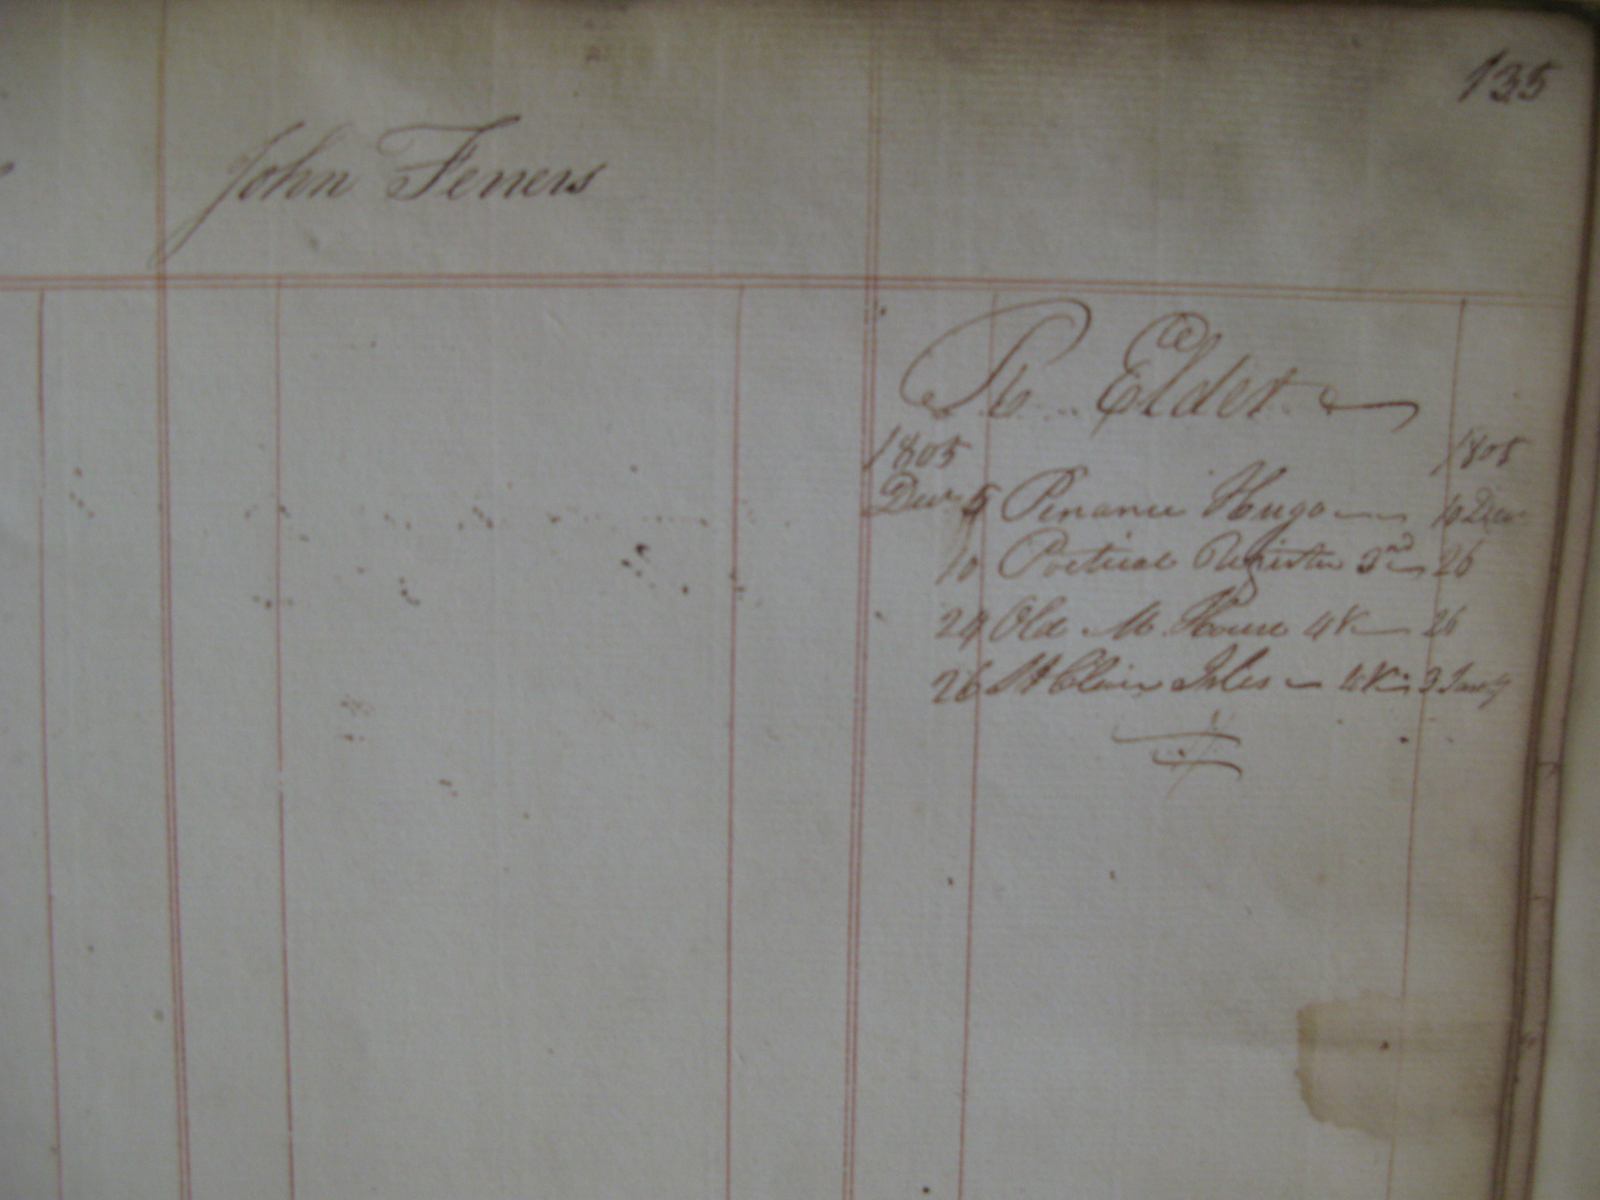 135
John Feners
Elder
1805 1805
Decr 5 Penance Hugo 10 Decr
10 Poetical Register 3rd 26
24 Old M. House 4 V 26
26 St Clair Isles 4 V 3 Jany